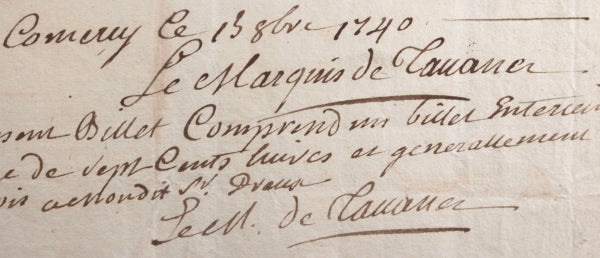 Comercy Ce 15 8bre 1740
Le Marquis de Tauanes
sent Billet Comprend un billet Enterieu
e de sept Cents livres et generallement
ois a mondit Sr. Dreux
Le M. de Tauanes